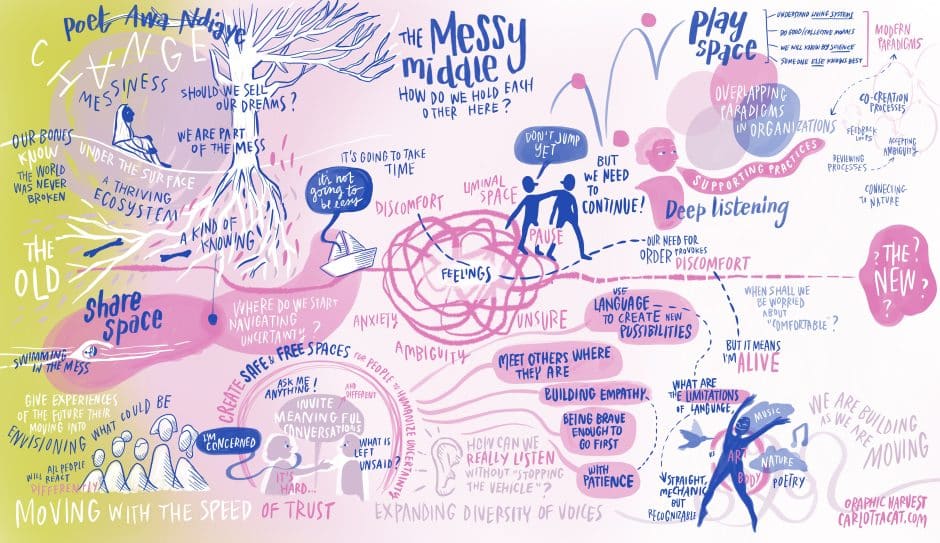 Poet Awa Ndiaye
CHANGE
MESSINESS
SHOULD WE SELL
OUR DREAMS?
WE ARE PART
OF THE MESS
OUR BONES
KNOW
THE WORLD
WAS NEVER
BROKEN
UNDER THE SURFACE
A THRIVING
ECOSYSTEM
A KIND OF
KNOWING
THE
OLD
share
space
SWIMMING
IN THE MESS
WHERE DO WE START
NAVIGATING
UNCERTAINTY?
THE Messy
middle
HOW DO WE HOLD EACH
OTHER HERE?
IT'S GOING TO TAKE
TIME
it's not
going to
be easy
DISCOMFORT
LIMINAL
SPACE
DON'T JUMP
YET
PAUSE
BUT
WE NEED
TO
CONTINUE!
FEELINGS
ANXIETY
AMBIGUITY
UNSURE
OUR NEED FOR
ORDER PROVOKES
DISCOMFORT
Play
space
UNDERSTAND LIVING SYSTEMS
DO GOOD/COLLECTIVE MORALS
WE WILL KNOW BY SCIENCE
SOMEONE ELSE KNOWS BEST
MODERN
PARADIGMS
OVERLAPPING
PARADIGMS
IN ORGANIZATIONS
SUPPORTING PRACTICES
Deep listening
CO-CREATION
PROCESSES
FEEDBACK
LOOPS
ACCEPTING
AMBIGUITY
REVIEWING
PROCESSES
CONNECTING
TO NATURE
?THE?
?NEW?
?
WHEN SHALL WE
BE WORRIED
ABOUT
"COMFORTABLE"?
BUT IT MEANS
I'M ALIVE
USE
LANGUAGE
TO CREATE NEW
POSSIBILITIES
MEET OTHERS WHERE
THEY ARE
BUILDING EMPATHY
BEING BRAVE
ENOUGH TO
GO FIRST
WITH
PATIENCE
WHAT ARE
THE LIMITATIONS
OF LANGUAGE.
MUSIC
ART
NATURE
BODY
POETRY
STRAIGHT,
MECHANIC
BUT
RECOGNIZABLE
WE ARE BUILDING
AS WE ARE
MOVING
GIVE EXPERIENCES
OF THE FUTURE THEIR
MOVING INTO
ENVISIONING WHAT COULD BE
ALL PEOPLE
WILL REACT
DIFFERENTLY
CREATE SAFE & FREE SPACES FOR PEOPLE TO HUMANIZE UNCERTAINTY
ASK ME
ANYTHING!
AND
DIFFERENT
INVITE
MEANINGFUL
CONVERSATIONS
I'M
CONCERNED
WHAT IS
LEFT
UNSAID?
IT'S
HARD...
HOW CAN WE
REALLY LISTEN
WITHOUT "STOPPING
THE VEHICLE"?
MOVING WITH THE SPEED OF TRUST
EXPANDING DIVERSITY OF VOICES
GRAPHIC HARVEST
CARLOTTACAT.COM